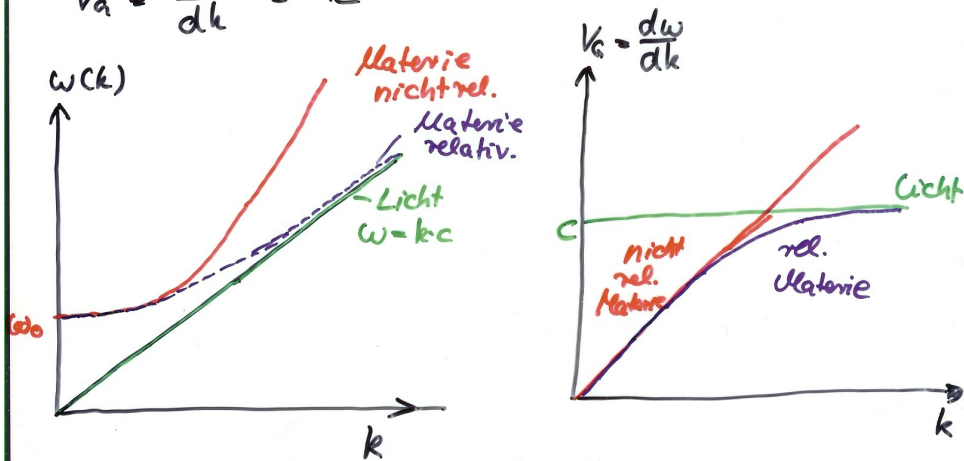 dk
ω(k)
Materie
nicht rel.
Materie
relativ.
Licht
ω = k·c
ω₀
k
V_G = dω
dk
Licht
c
nicht
rel.
Materie
rel.
Materie
k